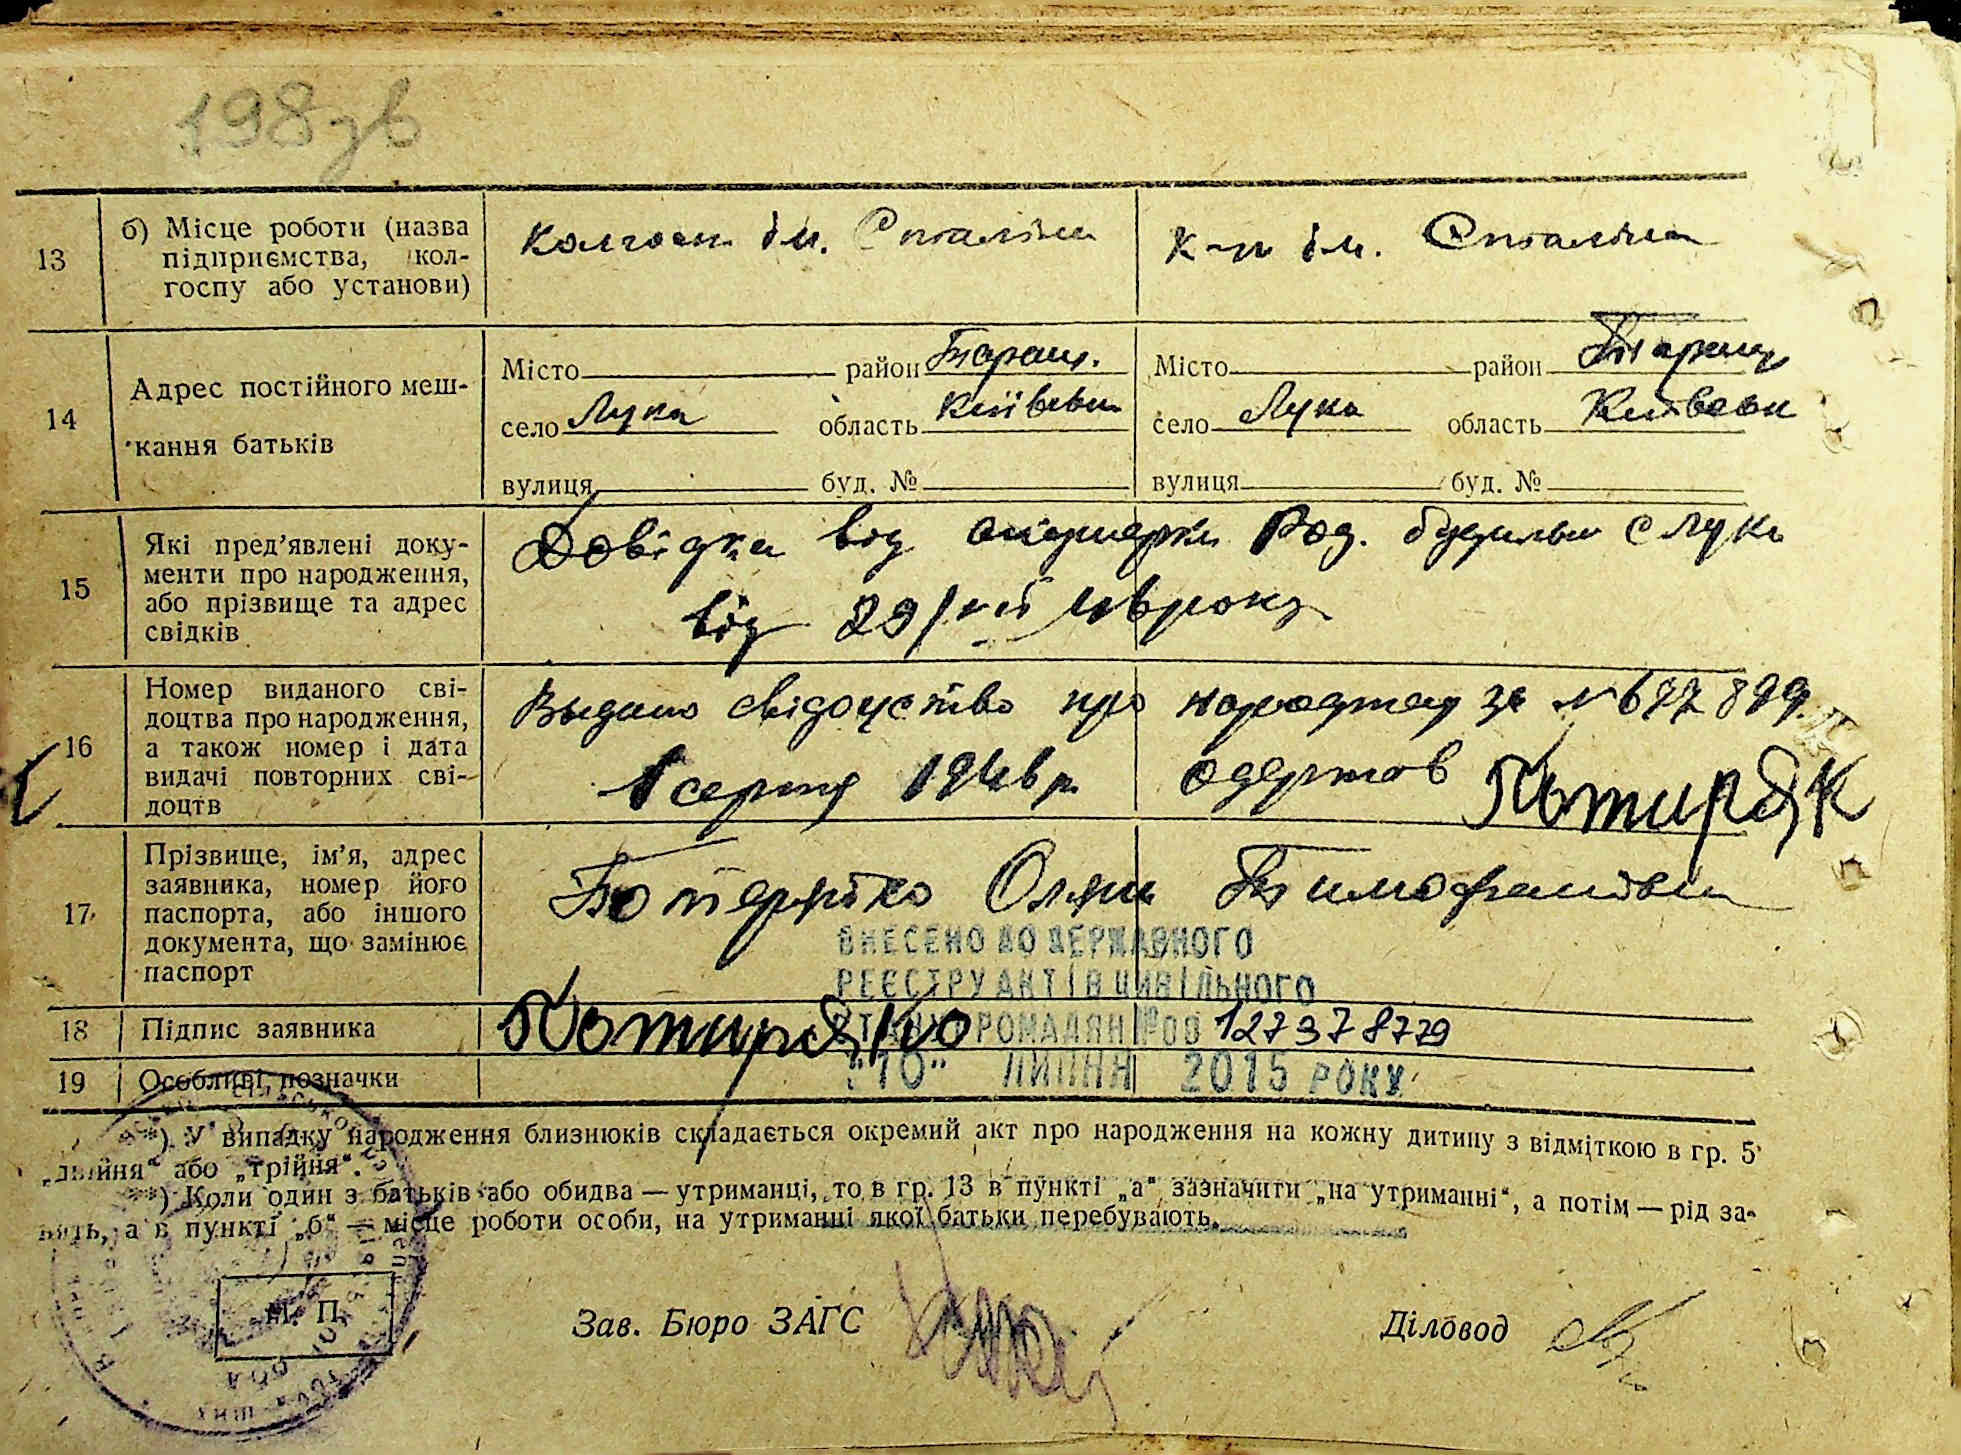 198 зв
13 б) Місце роботи (назва підприємства, колгоспу або установи) Колгосп ім. Сталіна к-п ім. Сталіна
14 Адрес постійного меш-
кання батьків
Місто район Таращ. Місто район Таращ
село Лука область Київськ село Лука область Київськ
вулиця буд. № вулиця буд. №
15 Які пред'явлені доку-
менти про народження,
або прізвище та адрес
свідків
Довідка від акушерки Род. будильн с Лука
від 29/VII 46 року
16 Номер виданого сві-
доцтва про народження,
а також номер і дата
видачі повторних сві-
доцтв
Выдано свідоцтво про народжен за №
1 серпня 1946 р. одержав
17 Прізвище, ім'я, адрес
заявника, номер його
паспорта, або іншого
документа, що замінює
паспорт
Тимофаївни
ВНЕСЕНО ДО ДЕРЖАВНОГО
РЕЄСТРУ АКТІВ ЦИВІЛЬНОГО
18 Підпис заявника
СТАНУ ГРОМАДЯН №00 127378729
19 Особливі позначки
"10" ЛИПНЯ 2015 РОКУ
*) У випадку народження близнюків складається окремий акт про народження на кожну дитину з відміткою в гр. 5
„двійня“ або „трійня“.
**) Коли один з батьків або обидва — утриманці, то в гр. 13 в пункті „а“ зазначити „на утриманні“, а потім — рід за-
нять, а в пункті „б“ — місце роботи особи, на утриманні якої батьки перебувають.
М. П.
Зав. Бюро ЗАГС Діловод